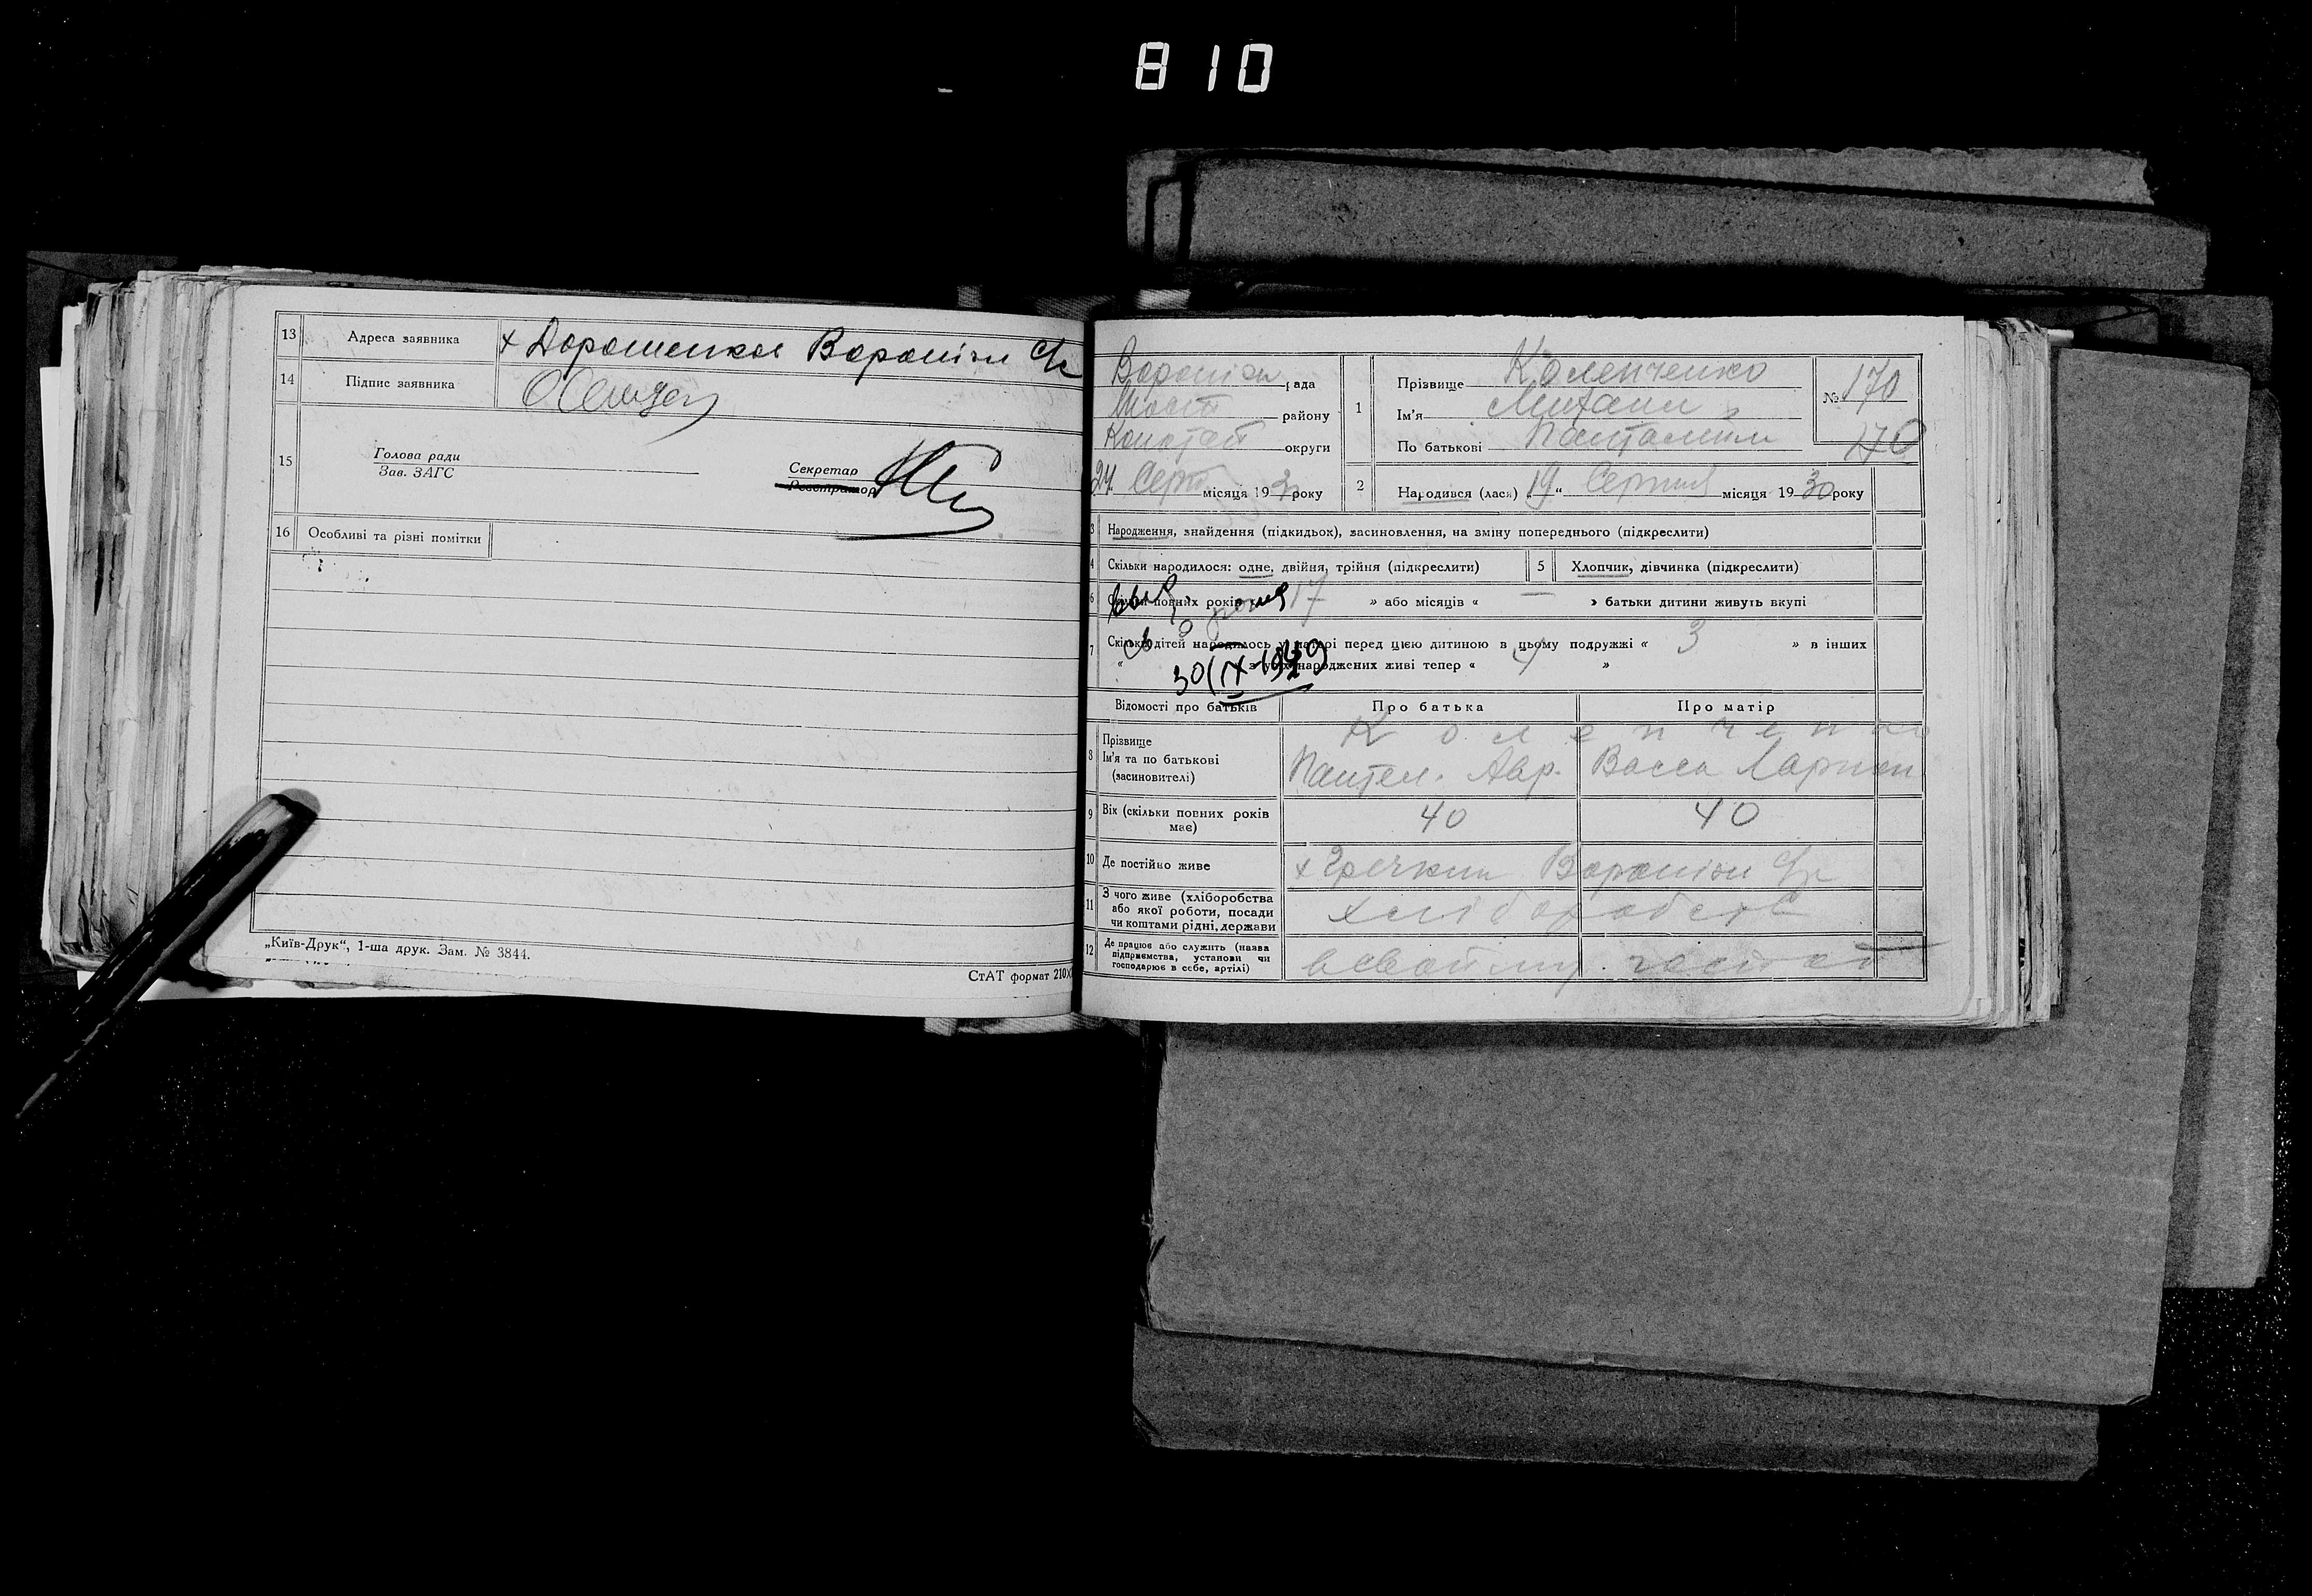 810
13 Адреса заявника х Дорошенков Вороніж С/р
14 Підпис заявника
15 Голова ради
Зав. ЗАГС
Секретар
Реєстратор
16 Особливі та різні помітки
„Київ-Друк“, 1-ша друк. Зам. № 3844.
СтАТ формат 210х
Вороніж рада
Шост району
Конотоп округи
24 Серп місяця 193 року
1 Прізвище Коленченко
Ім'я Михайло
По батькові
№ 170
170
2 Народився (лася) „19“ Серпня місяця 1930 року
3 Народження, знайдення (підкидьох), засиновлення, на зміну попереднього (підкреслити)
4 Скільки народилося: одне, двійня, трійня (підкреслити)
5 Хлопчик, дівчинка (підкреслити)
6 повних років 17 » або місяців « » батьки дитини живуть вкупі
7 Скільки дітей народилось у матері перед цією дитиною в цьому подружжі « 3 » в інших
« з усіх народжених живі тепер « 4 »
30/IX-19
Відомості про батьків Про батька Про матір
8 Прізвище
Ім'я та по батькові
(засновителі)
Коленченко
Пантел. Авр. Васса Ларион
9 Вік (скільки повних років має) 40 40
10 Де постійно живе х Гречкин Вороніж С/р
11 З чого живе (хліборобства
або якої роботи, посади
чи коштами рідні, держави
хліборобств
12 Де працює або служить (назва
підприємства, установи чи
господарює в себе, артілі)
в своему госпо